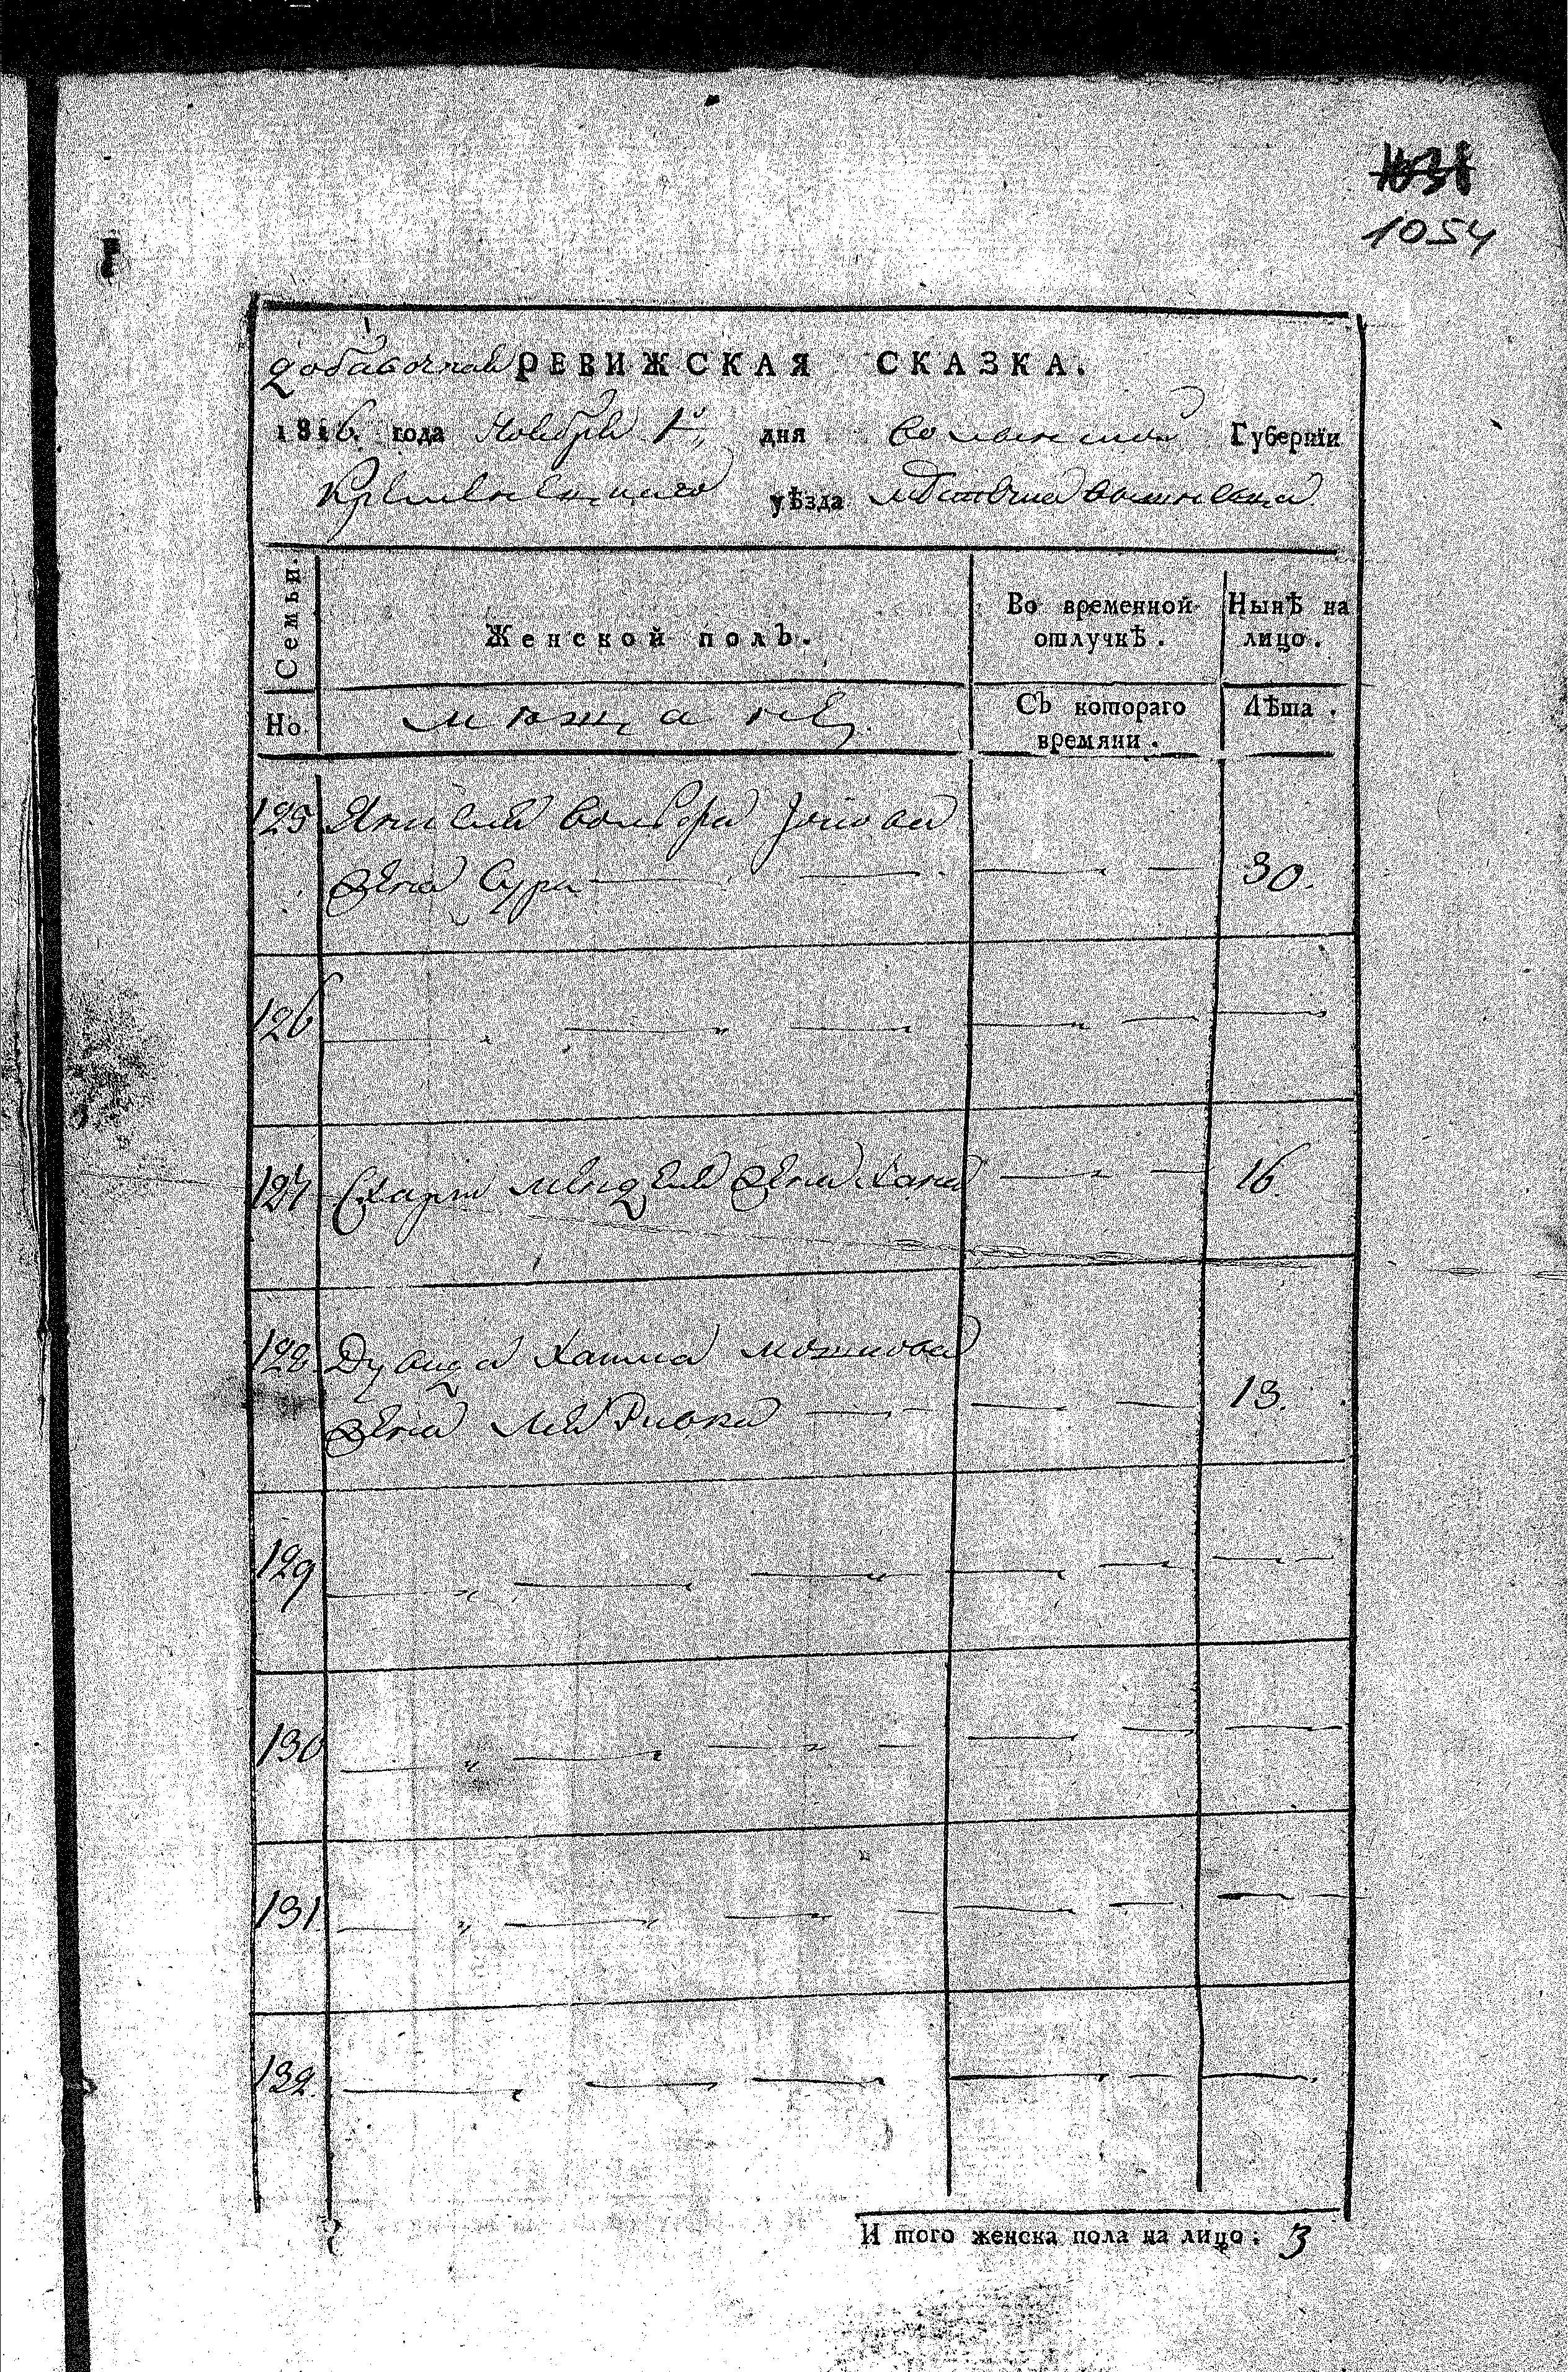 1054
добавочная РЕВИЖСКАЯ СКАЗКА.
1816. года Ноября 1го дня Волынской Губернїи
Кременецкаго уѣзда местечка
Семьи.
Женской полъ.
Во временной отлучкѣ.
Нынѣ на лицо.
Но.
мещане
Съ котораго времяни.
Лѣта.
125 Янкеля Волфа
жена Сура 30.
126
127 Менделя жена Хана 16.
128 Дувида Хаима Мошкова
жена Лея Ривка 13.
129
130
131
132.
И того женска пола на лицо: 3